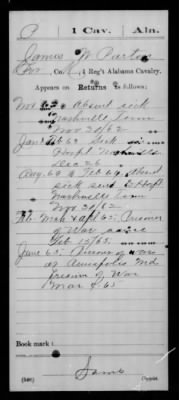 P | 1 Cav. | Ala.
James W Purton
Pvt, Co. , 1 Reg't Alabama Cavalry.
Appears on Returns as follows:
Nov 62 Absent sick
Nashville Tenn
Nov 20/62
Jan 63 Sick
Hosp'l Nashville
Dec 26
Aug 63 to Feb 64 Absent
sick sent to Hosp't
Nashville Tenn
Nov 20/62
Feb Mch & Apl 65; Prisoner
of War since
Feb 15/65.
June 65; Prisoner of war
at Annapolis Md
Prison of War
Mar 65
Book mark:
Lamb
Copyist.